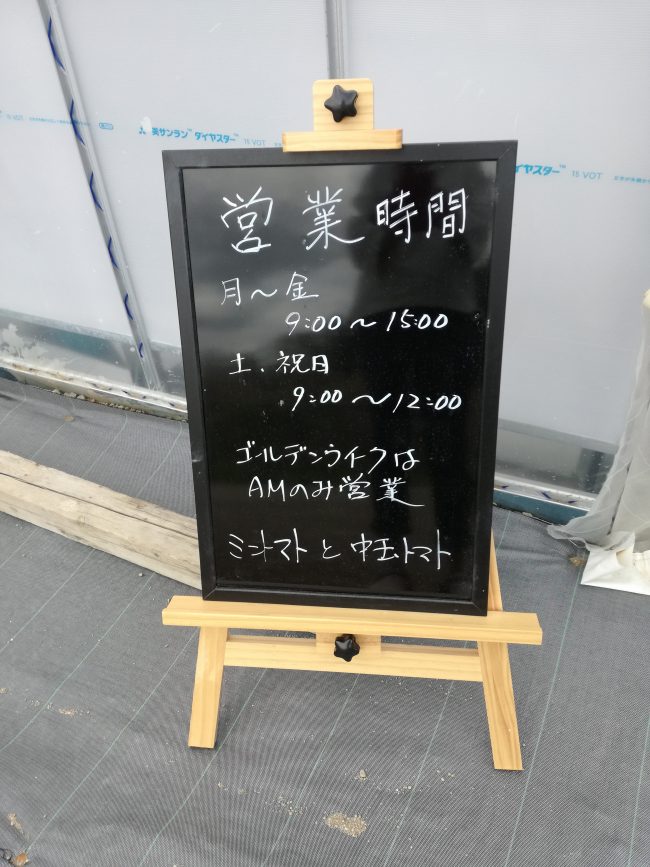 英サンラン™ ダイヤスター™ 15 VOT
ダイヤスター™ 15 VOT
営業時間
月〜金
9:00〜15:00
土、祝日
9:00〜12:00
ゴールデンウイークは
AMのみ営業
ミニトマトと中玉トマト